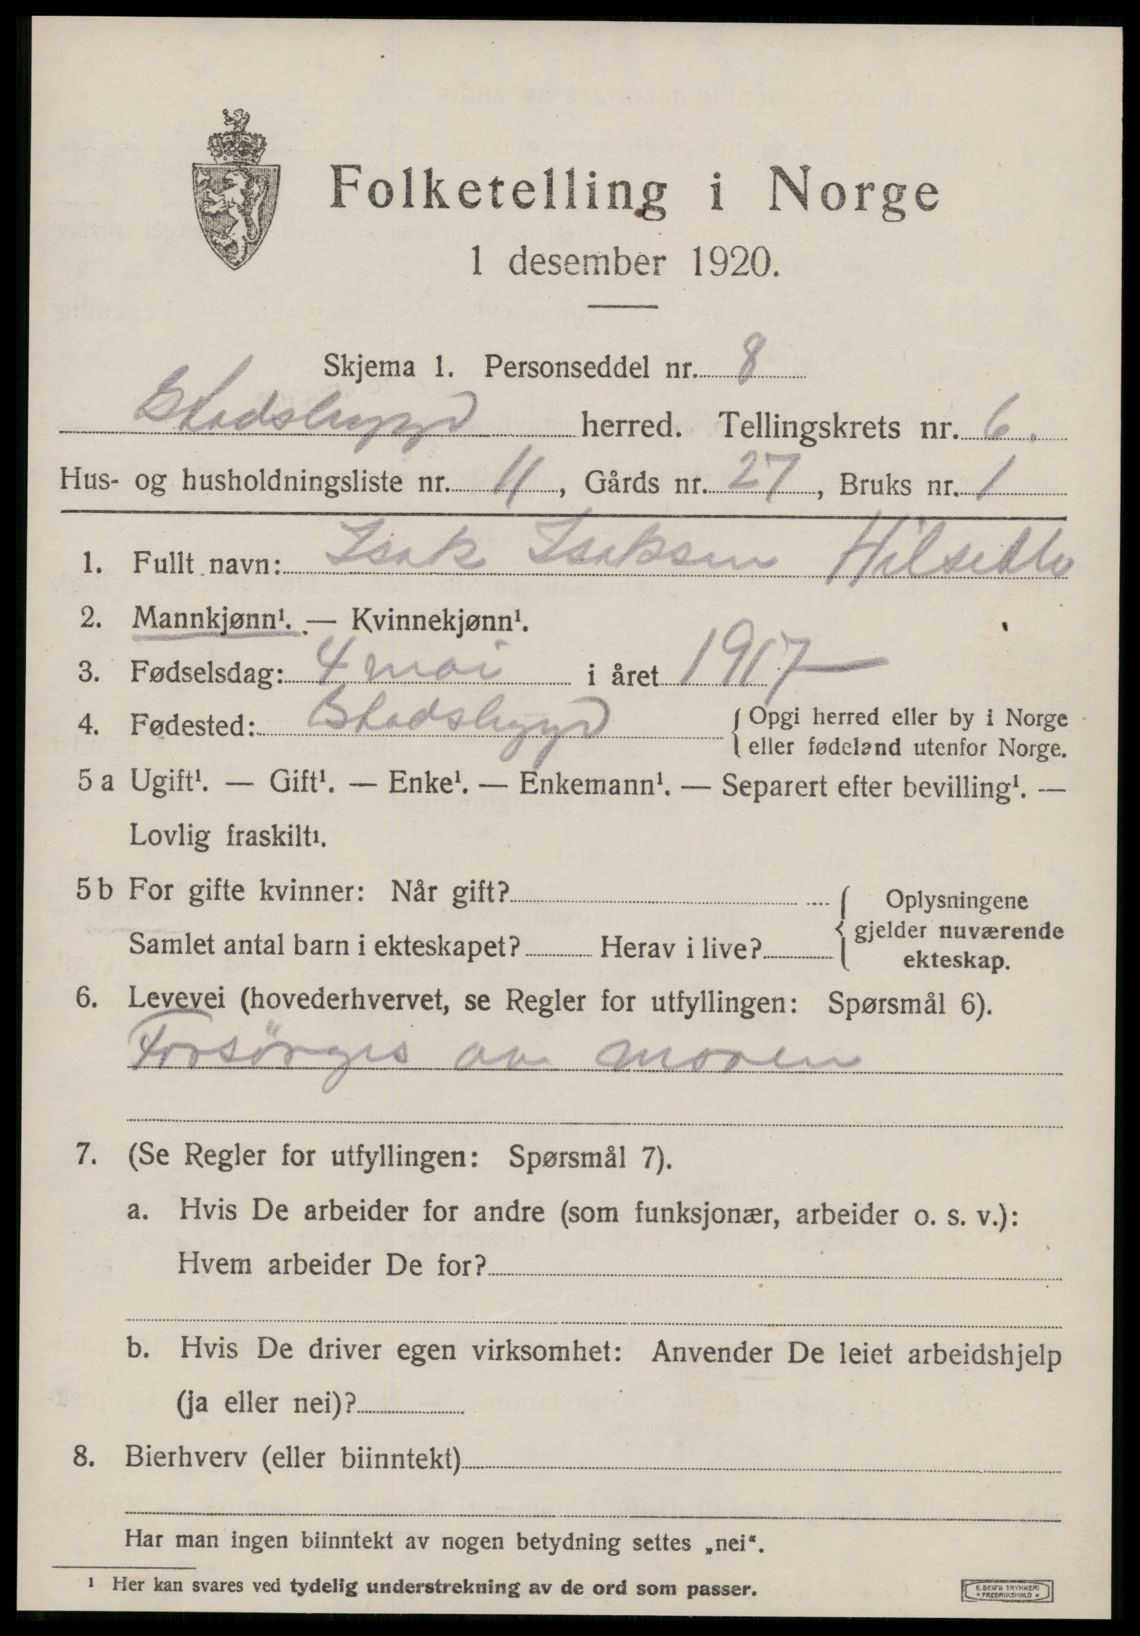 Folketelling i Norge
1 desember 1920.
Skjema 1. Personseddel nr. 8
Stadsbygd herred. Tellingskrets nr. 6.
Hus- og husholdningsliste nr. 11, Gårds nr. 27, Bruks nr. 1
1. Fullt navn: Isak Isaksen
2. Mannkjønn¹. — Kvinnekjønn¹.
3. Fødselsdag: 4 mai i året 1917
4. Fødested: Stadsbygd { Opgi herred eller by i Norge
eller fødeland utenfor Norge.
5 a Ugift¹. — Gift¹. — Enke¹. — Enkemann¹. — Separert efter bevilling¹. —
Lovlig fraskilt¹.
5 b For gifte kvinner: Når gift? { Oplysningene
gjelder nuværende
Samlet antal barn i ekteskapet? Herav i live?
ekteskap.
6. Levevei (hovederhvervet, se Regler for utfyllingen: Spørsmål 6).
Forsørges av moren
7. (Se Regler for utfyllingen: Spørsmål 7).
a. Hvis De arbeider for andre (som funksjonær, arbeider o. s. v.):
Hvem arbeider De for?
b. Hvis De driver egen virksomhet: Anvender De leiet arbeidshjelp
(ja eller nei)?
8. Bierhverv (eller biinntekt)
Har man ingen biinntekt av nogen betydning settes „nei“.
¹ Her kan svares ved tydelig understrekning av de ord som passer.
E. SEM'S TRYKKERI
FREDRIKSHALD